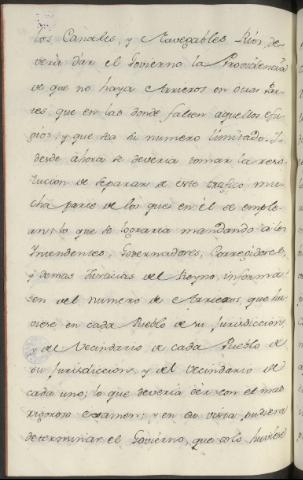 los Canales, y Navegables Rios, de-
verá dar el Govierno la Providencia
de que no haya Arrieros en otras Par-
tes, que en las donde falten aquellos
y que sea su numero limitado. Y
desde ahora se deveria tomar la reso-
lucion de separar de este trafico mu-
cha parte de los que en él se emple-
an; lo que se lograria mandando a los
Intendentes, Governadores, Corregidores,
y demas Justicias del Reyno, informa-
sen del numero de Arrieros, que hu-
viese en cada Pueblo de su Jurisdiccion,
y del Vecindario de cada Pueblo de
su Jurisdiccion, y del Vecindario de
cada uno; lo que deveria ser con el mas
rigoroso examen; y en su vista pudiera
determinar el Govierno, que solo huviese